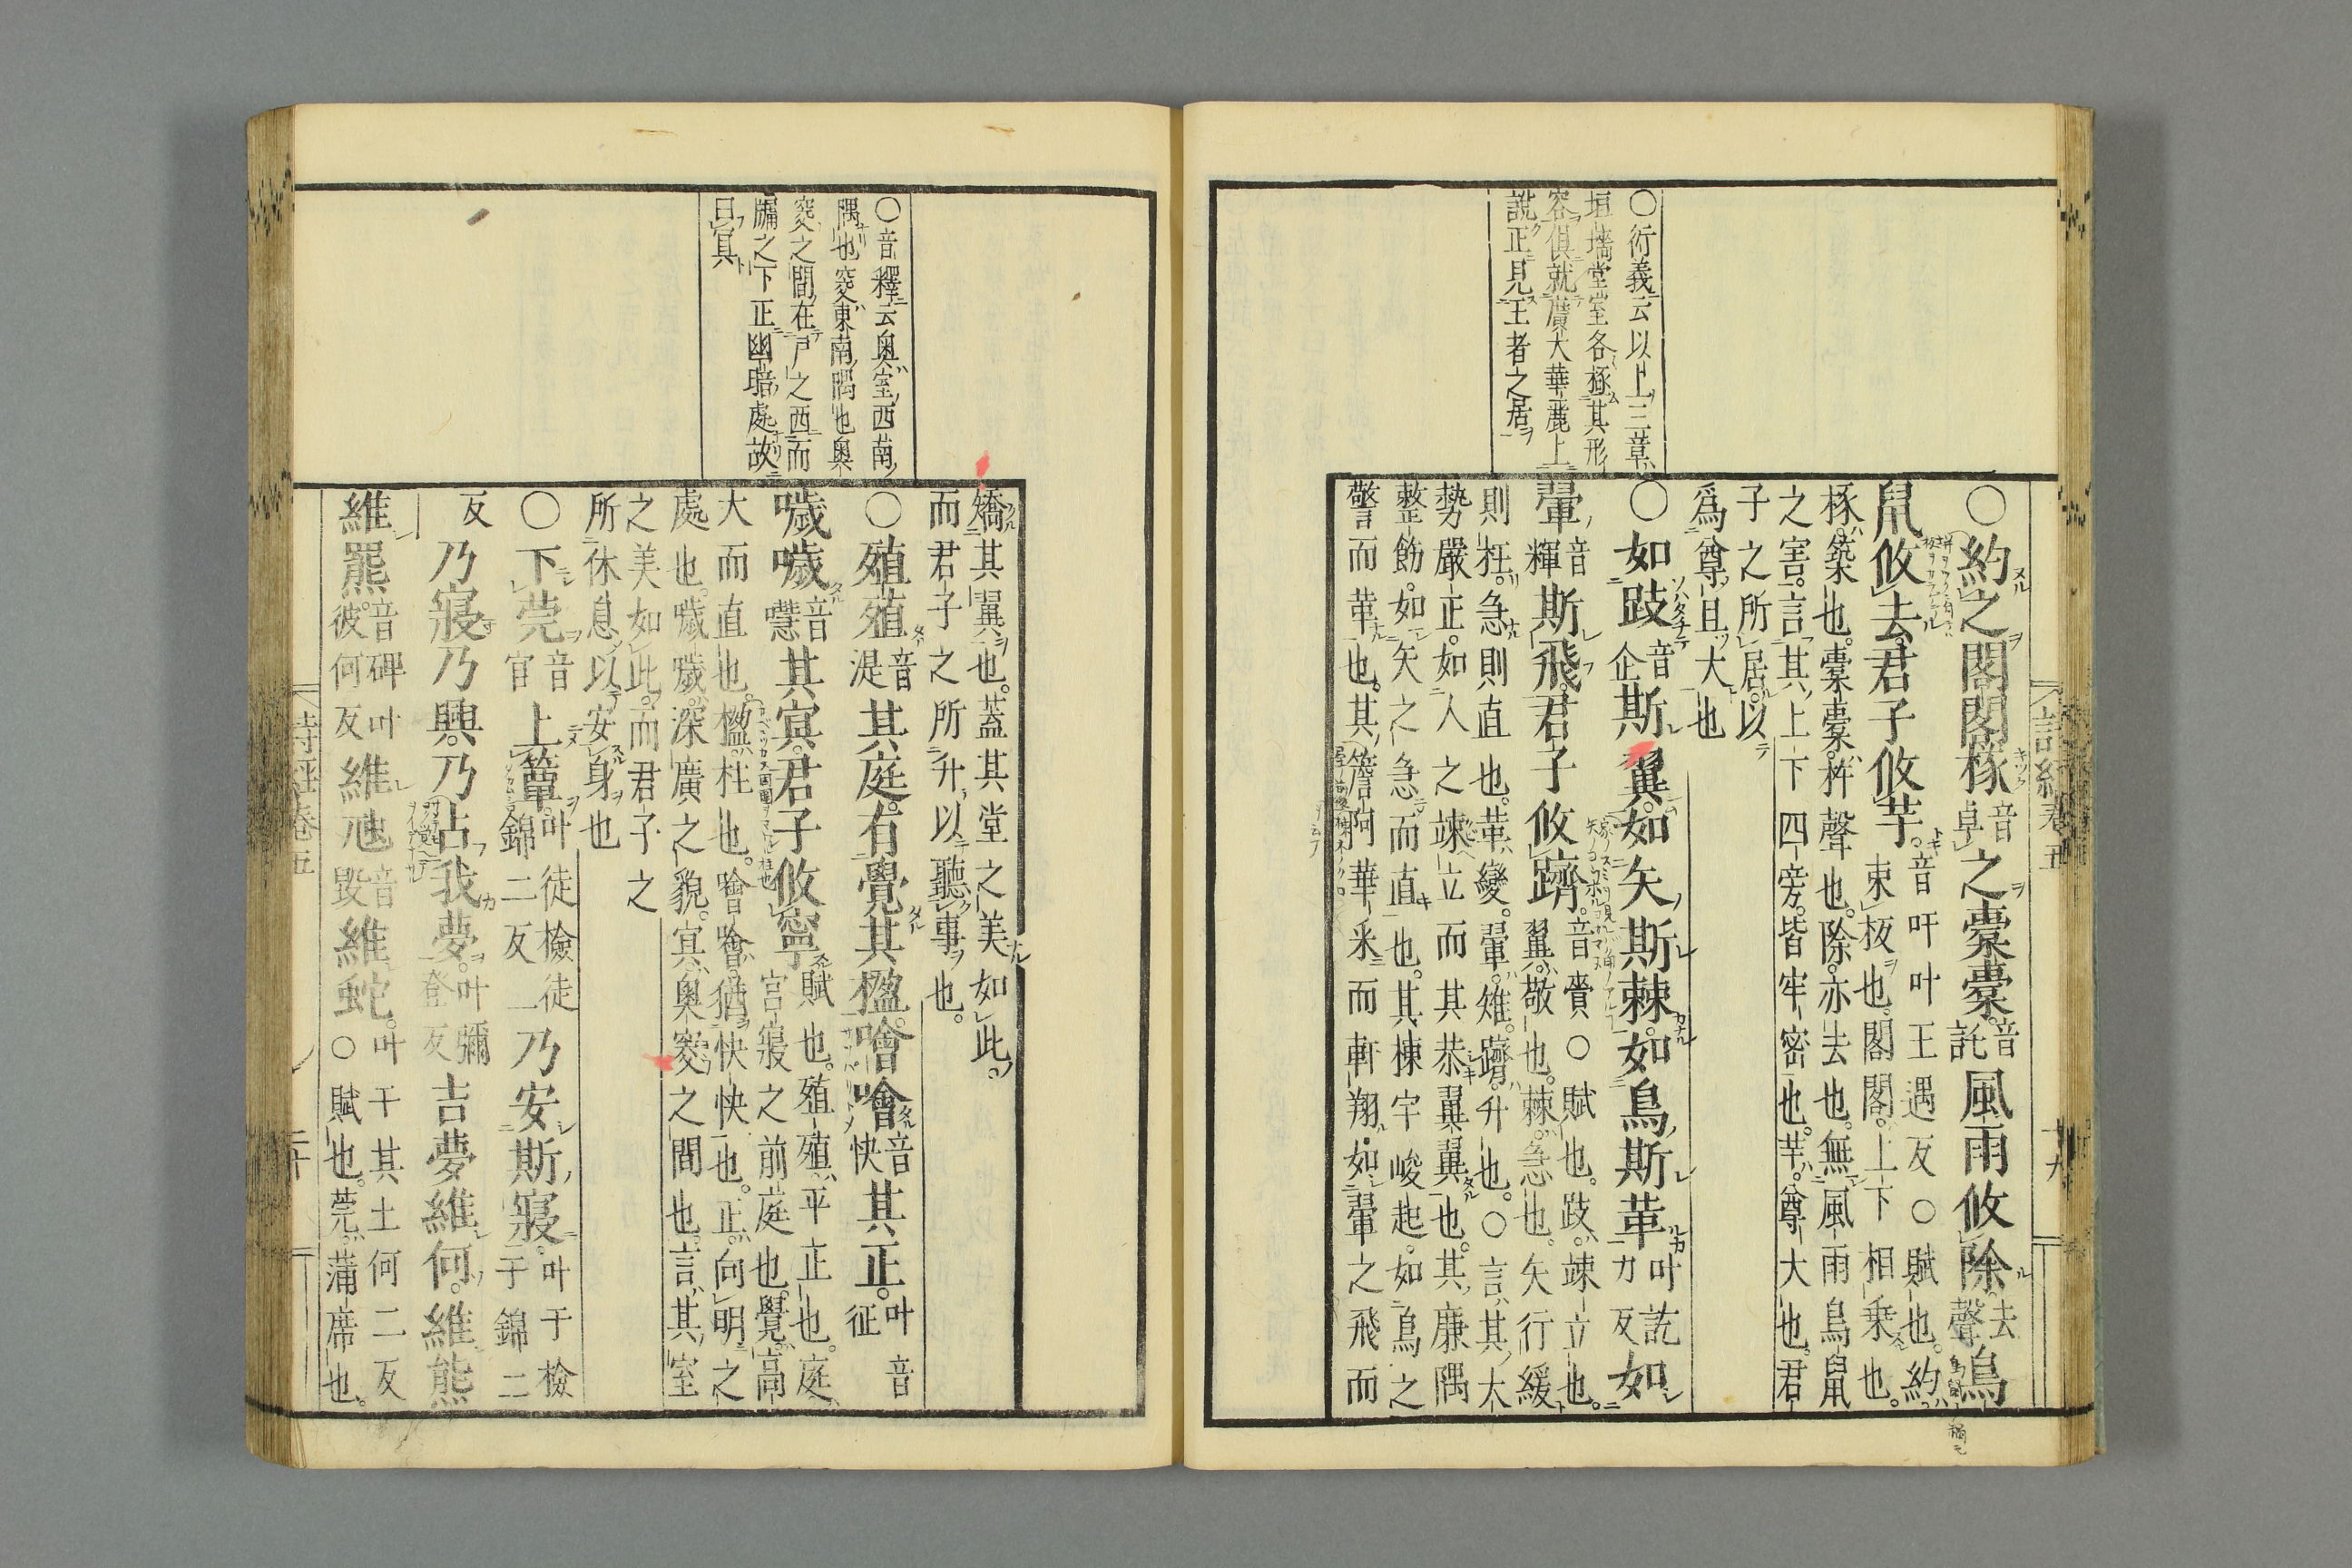 ○衍義云以上三章
垣墻堂室各極其形
容俱就廣大華麗上
說正見王者之居
詩經卷五
十九
○約之閣閣椓音卓之橐橐音託風雨攸除去聲鳥
鼠攸去君子攸芋音吁叶王遇反○賦也約
束板也閣閣上下相乘也
椓築也橐橐杵聲也除亦去也無風雨鳥鼠
之害言其上下四旁皆牢密也芋尊大也君
子之所居以
爲尊且大也
○如跂音企斯翼如矢斯棘如鳥斯革叶訖力反如
翬音輝斯飛君子攸躋音賫○賦也跂竦立也
翼敬也棘急也矢行緩
則枉急則直也革變翬雉躋升也○言其大
勢嚴正如人之竦立而其恭翼翼也其廉隅
整飭如矢之急而直也其棟宇峻起如鳥之
警而革也其簷阿華采而軒翔如翬之飛而
○音釋云奥室西南
隅也窔東南隅也奥
窔之間在戶之西而
牖之下正幽暗處故
曰冥
矯其翼也蓋其堂之美如此
而君子之所升以聽事也
○殖殖音湜其庭有覺其楹噲噲音快其正叶音征
噦噦音嘒其冥君子攸寧賦也殖殖平正也庭
宮寢之前庭也覺高
大而直也楹柱也噲噲猶快快也正向明之
處也噦噦深廣之貌冥奥窔之間也言其室
之美如此而君子之
所休息以安身也
○下莞音官上簟叶徒檢徒錦二反乃安斯寢叶于檢于錦二
反乃寢乃興乃占我夢叶彌登反吉夢維何維熊
維羆音碑叶彼何反維虺音毀維蛇叶于其土何二反
○賦也莞蒲席也
詩經卷五
二十